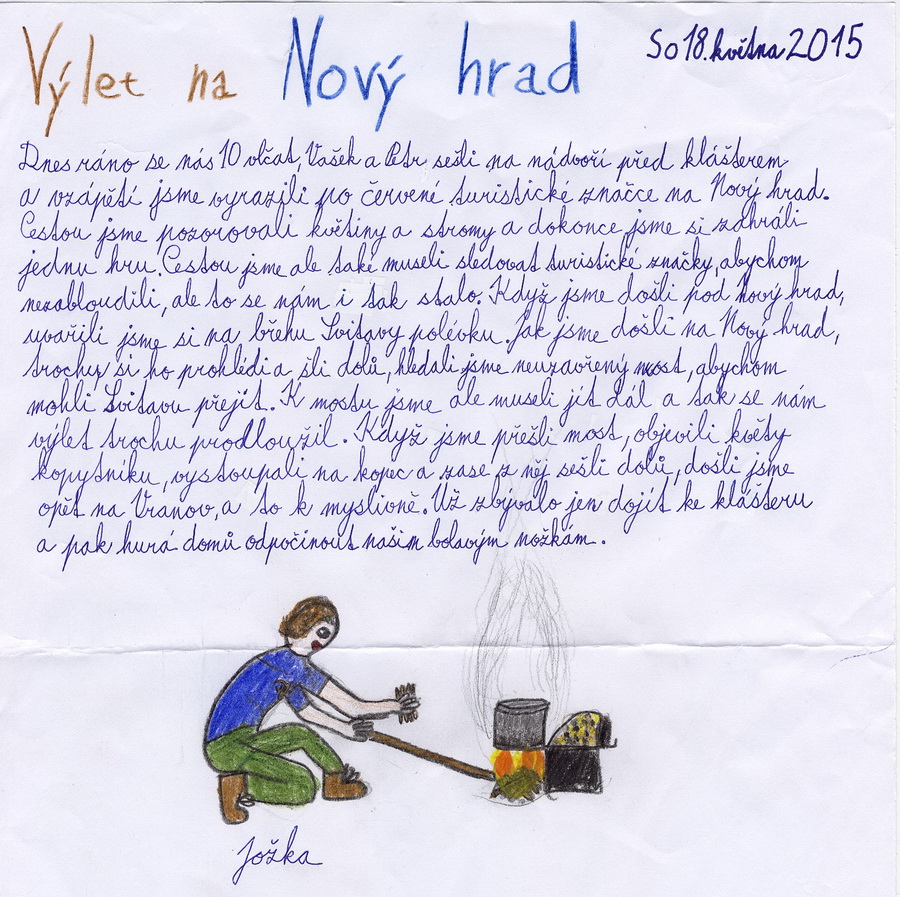 Výlet na Nový hrad
So 18. května 2015
Dnes ráno se nás 10 vlčat, Vašek a Petr sešli na nádvoří před klášterem
a vzápětí jsme vyrazili po červené turistické značce na Nový hrad.
Cestou jsme pozorovali květiny a stromy a dokonce jsme si zahráli
jednu hru. Cestou jsme ale také museli sledovat turistické značky, abychom
nezabloudili, ale to se nám i tak stalo. Když jsme došli pod Nový hrad,
uvařili jsme si na břehu Svitavy polévku. Jak jsme došli na Nový hrad,
trochu si ho prohlédi a šli dolů, hledali jsme neuzavřený most, abychom
mohli Svitavu přejít. K mostu jsme ale museli jít dál a tak se nám
výlet trochu prodloužil. Když jsme přešli most, objevili květy
kopytníku, vystoupali na kopec a zase z něj sešli dolů, došli jsme
opět na Vranov, a to k myslivně. Už zbývalo jen dojít ke klášteru
a pak hurá domů odpočinout našim bolavým nožkám.
Jožka